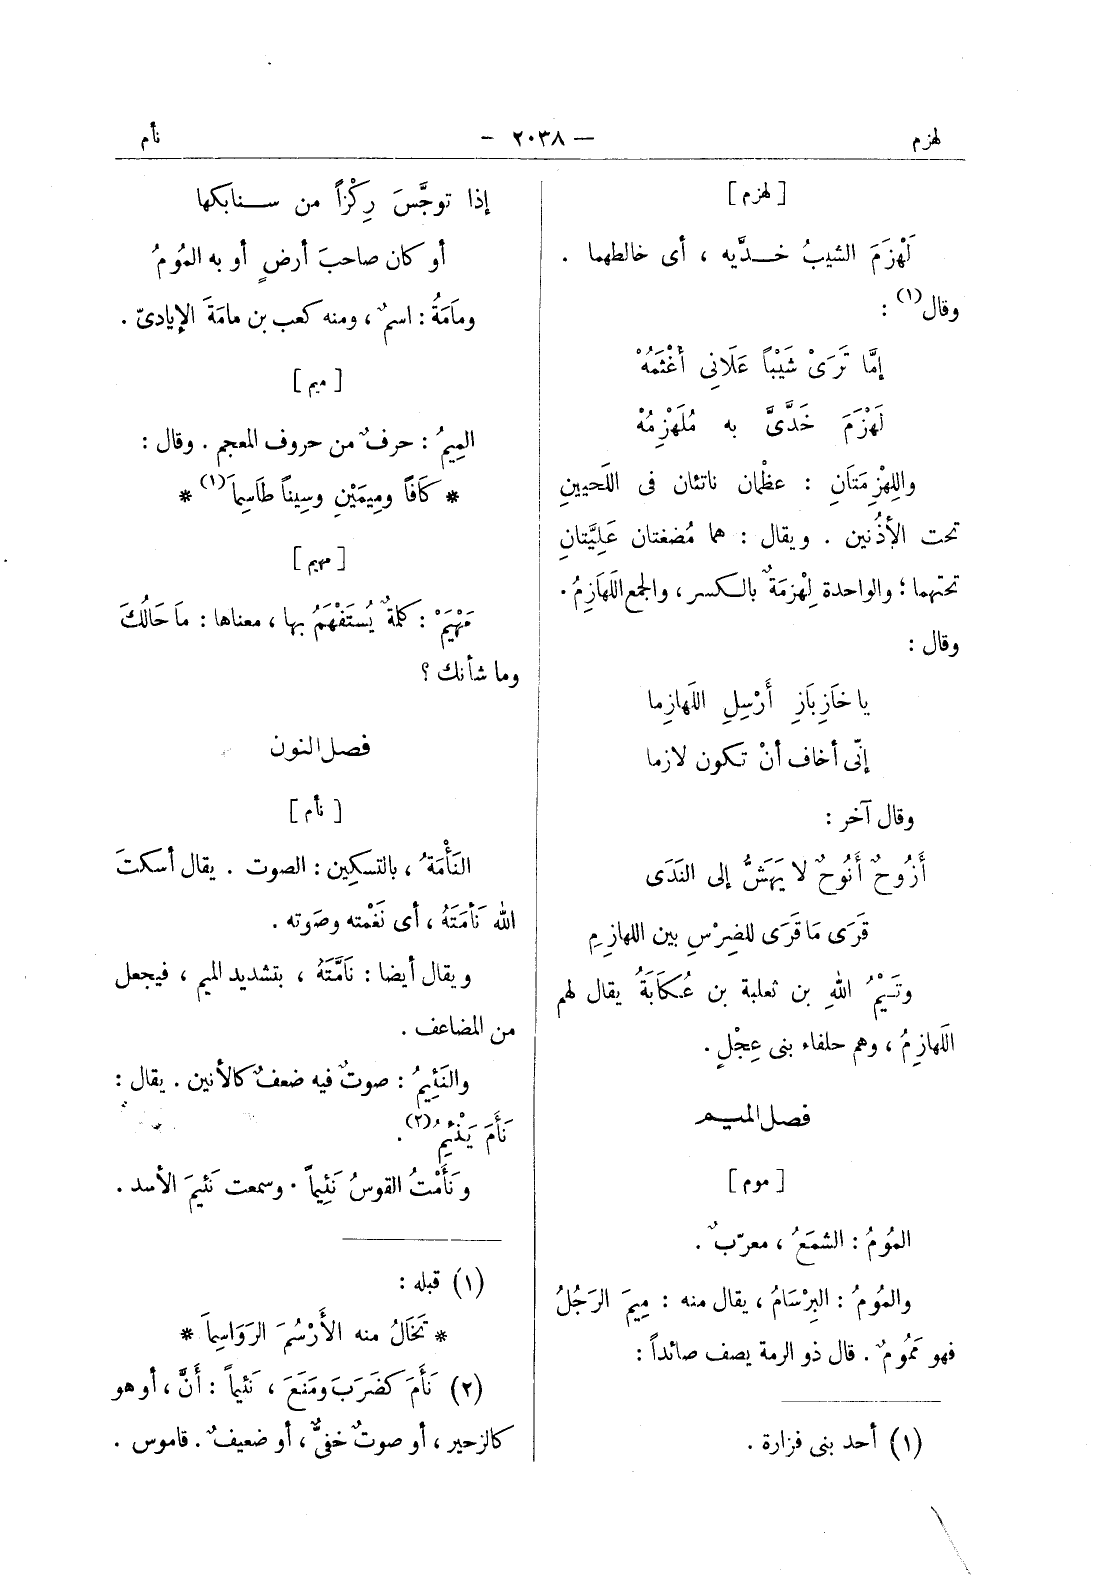 لهزم
— ٢٠٣٨ —
نأم
[ لهزم ]
لَهْزَمَ الشيبُ خـدَّيه ، أى خالطهما .
وقال(١) :
إمَّا تَرَىْ شَيْباً عَلَانِى أَغْثَمُهْ
لَهْزَمَ خَدَّىَّ به مُلَهْزِمُهْ
واللِهْزِمَتَانِ : عظْمان ناتئان فى اللَحيينِ
تحت الأذُنين . ويقال : هما مُضغتان عَلِيَّتانِ
تحتهما ؛ والواحدة لِهْزِمَةٌ بالكسر ، والجمع اللَهَازِمُ .
وقال :
يا خَازِ بَازِ أَرْسِلِ اللَهازِما
إنّى أخاف أنْ تكون لازما
وقال آخر :
أَزُوحٌ أَنُوحٌ لا يَهَشُّ إلى النَدَى
قَرَى مَا قَرَى للضِرْسِ بين اللهازِمِ
وتَيْمُ اللهِ بن ثعلبة بن عُكَابَةَ يقال لهم
اللَهازِمُ ، وهم حلفاء بنى عِجْلٍ .
فصل الميم
[ موم ]
المُومُ : الشَمَعُ ، معرّبٌ .
والمُومُ : البِرْسَامُ ، يقال منه : مِيمَ الرَجُلُ
فهو مَمُومٌ . قال ذو الرمة يصف صائداً :
(١) أحد بنى فزارة .
إذا توجَّسَ رِكْزاً من سنابكها
أو كان صاحبَ أرضٍ أو به المُومُ
ومَامَةُ : اسمٌ ، ومنه كعب بن مامَةَ الإيادىّ .
[ ميم ]
المِيمُ : حرفٌ من حروف المعجم . وقال :
* كَافاً ومِيمَيْنِ وسِيناً طَاسِمَا(١) *
[ مهيم ]
مَهْيَمْ : كلمةٌ يُستَفْهَمُ بها ، معناها : مَا حَالُكَ
وما شأنك ؟
فصل النون
[ نأم ]
النَأْمَةُ ، بالتسكِين : الصوت . يقال أسكتَ
الله نَأمَتَهُ ، أى نَغْمته وصَوته .
ويقال أيضا : نَامَّتَهُ ، بتشديد الميم ، فيجعل
من المضاعف .
والنَئِيمُ : صوتٌ فيه ضعفٌ كالأنين . يقال :
نَأَمَ يَنْئِمُ(٢) .
ونَأَمْتُ القوسُ نَئِيماً . وسمعت نَئيمَ الأسد .
(١) قبله :
* تَخَالُ منه الأَرْسُمَ الرَوَاسِمَا *
(٢) نَأَمَ كضَرَبَ ومَنَعَ ، نَئيماً : أَنَّ ، أو هو
كالزحير ، أو صوتٌ خفىٌّ ، أو ضعيفٌ . قاموس .